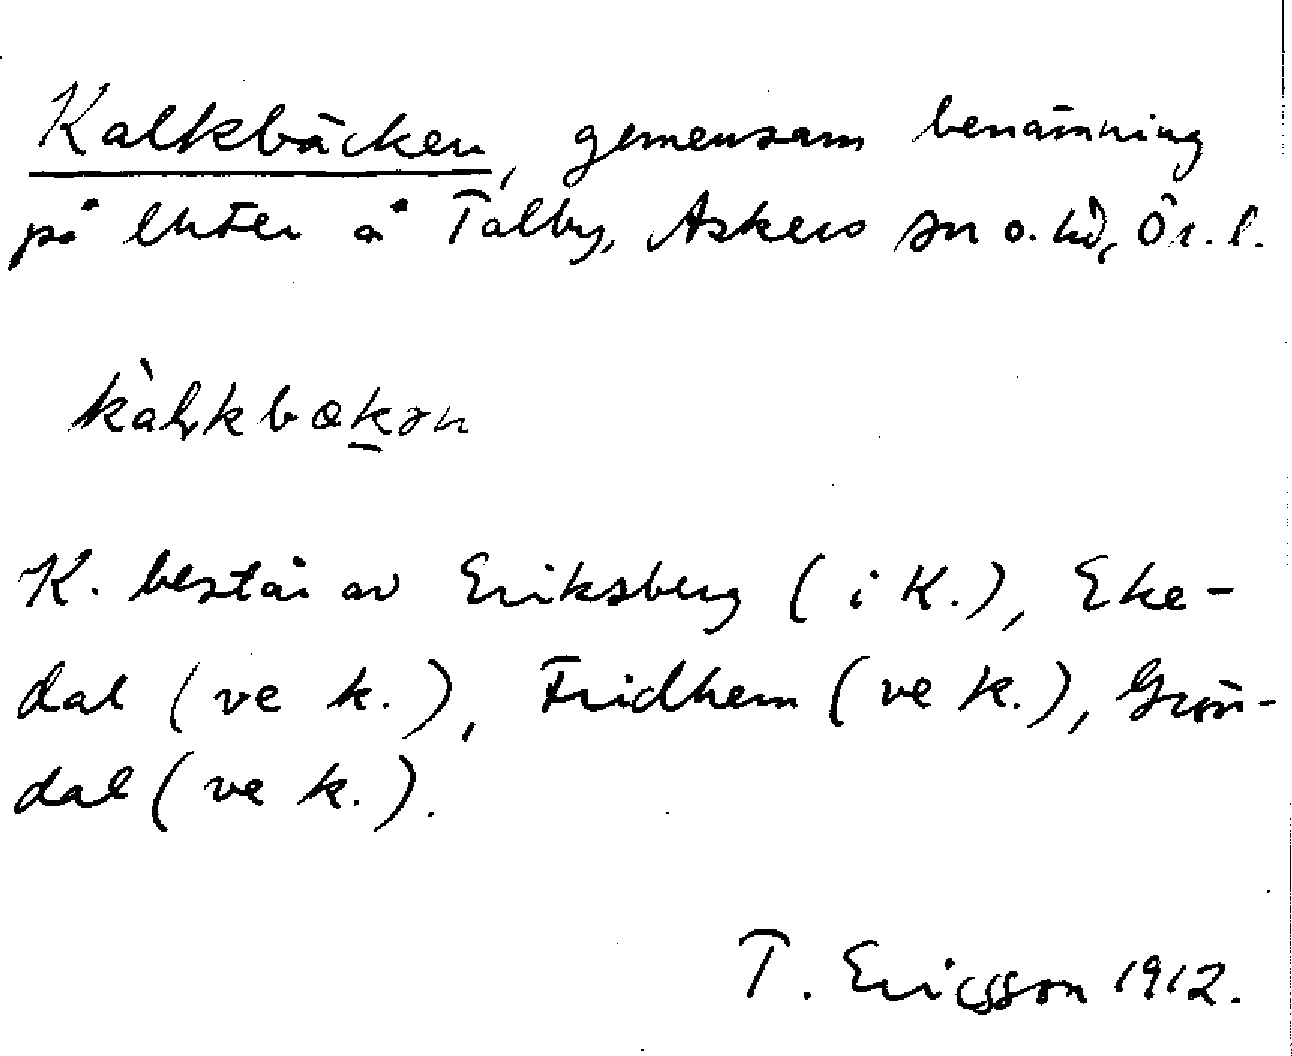 Kalkbäcken, gemensam benämning
på lhter å Talby, Askers sn o. hd, Ör. l.
kàlkbækən
K. består av Eriksberg (i K.), Eke-
dal (ve k.), Fridhem (ve k.), Grön-
dal (ve k.).
T. Ericsson 1912.